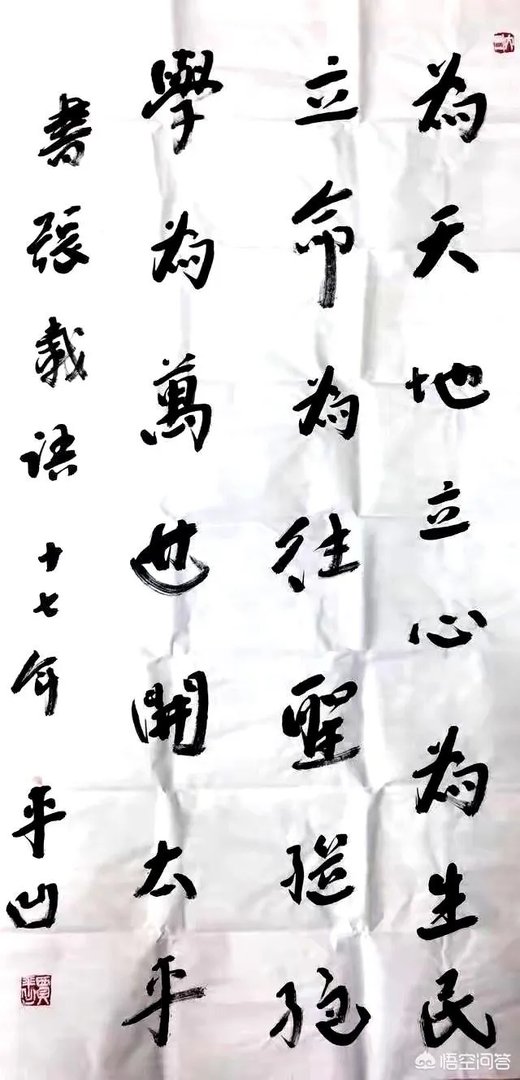 為天地立心為生民
立命為往聖繼絕
學為萬世開太平
書張載語 十七年 平凹
悟空问答